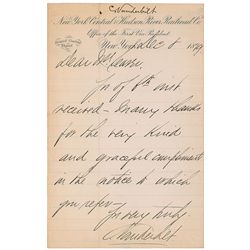 C Vanderbilt
New York Central & Hudson River Railroad Co
Office of the First Vice President
New York, Dec 8 1879
Dear
Yrs of 6th inst
received – many thanks
for the very kind
and graceful compliment
in the notice to which
you refer –
Very truly
C Vanderbilt